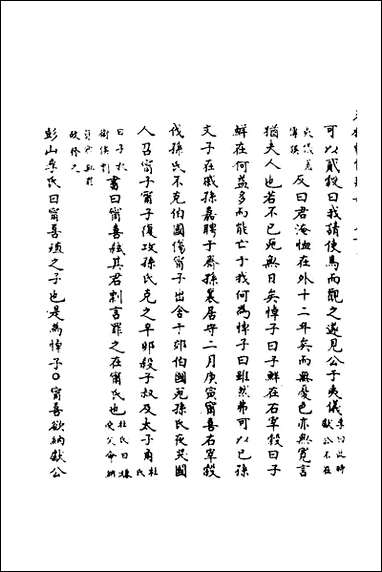 可以貳穀曰我請使焉而觀之遂見公子夷儀李曰此時獻公不在
夷儀善寧矣反曰君淹恤在外十二年矣而無憂色亦無寬言
猶夫人也若不已死無日矣悼子曰子鮮在右宰穀曰子
鮮在何益多而能亡于我何為悼子曰雖然弗可以已孫
文子在戚孫嘉聘于齊孫襄居守二月庚寅甯喜右宰穀
伐孫氏不克伯國傷甯子出舍于郊伯國死孫氏夜哭國
人召甯子甯子復攻孫氏克之辛卯殺子叔及太子角杜氏
曰子叔衛侯剽書曰甯喜弒其君剽言罪之在甯氏也杜氏曰嫌受父命納
故發之
彭山季氏曰甯喜殖之子也是為悼子○甯喜欲納獻公